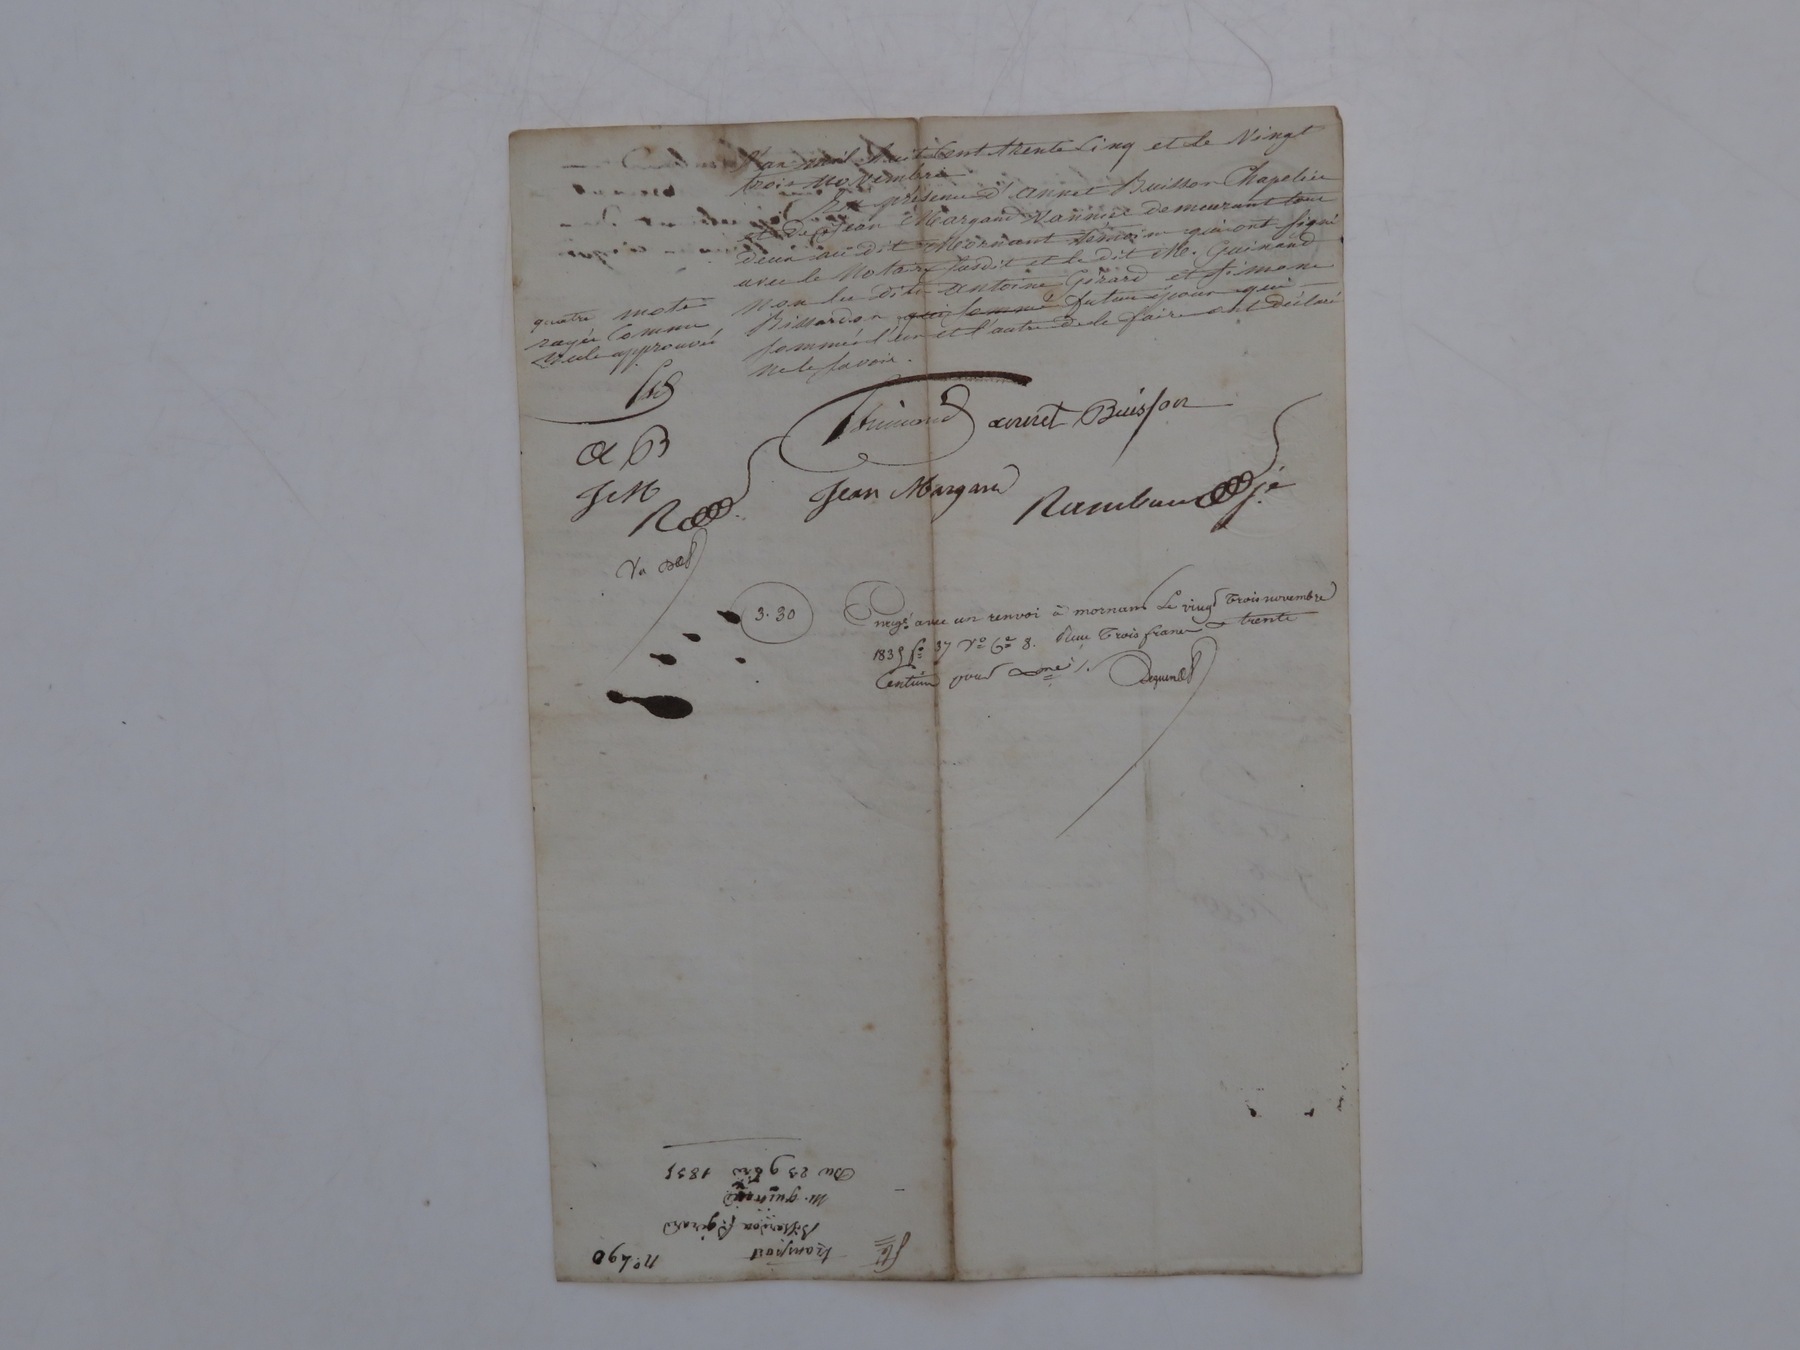 L'an mil huit Cent trente Cinq et le Vingt
trois Novembre
En présence d'Annet Buisson Chapelier
et de Jean Margand Vannier demeurant tous
deux au dit Mornant témoins qui ont signé
avec le Notaire susdit et le dit Me. Guinand
non les dits Antoine Gérard et Simone
Bissardon qui sommé futurs époux qui
sommés l'un et l'autre de le faire ont déclaré
ne le savoir.
quatre mots
rayés Comme
nuls approuvés
Guinand annet Buisson
A B
J M
Jean Margand
3. 30
Enregé. avec un renvoi à mornant Le vingt Trois novembre
1835 fo. 37 Vo. Ce. 8. Reçu Trois francs trente
Centimes pour
no. 490
transport
Bissardon & gérard
M. guinand
Du 23 9bre 1835